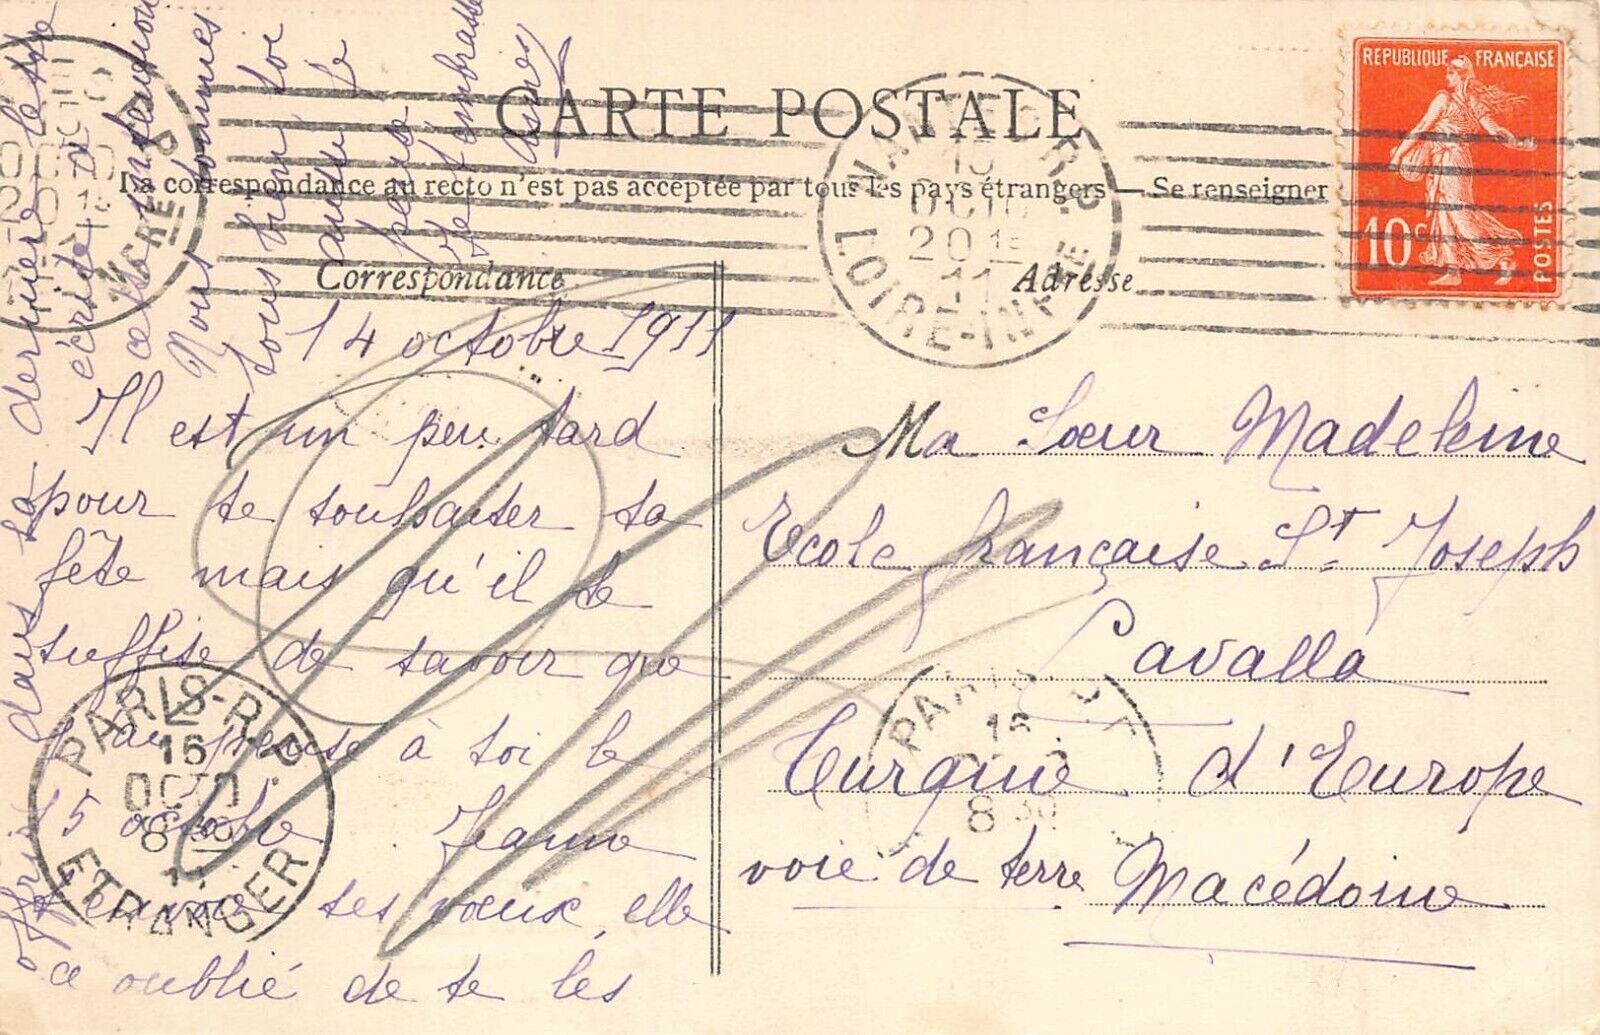 CARTE POSTALE
La correspondance au recto n'est pas acceptée par tous les pays étrangers — Se renseigner
Correspondance
Adresse
REPUBLIQUE FRANÇAISE
10c
POSTES
NANTES R.P.
15
OCTO
20
11
LOIRE-INFRE
14 octobre 1911
Il est un peu tard
pour te souhaiter ta
fête mais qu'il te
suffise de savoir que
j'ai pensé à toi le
15 octobre Jeanne
t'envoie ses vœux, elle
a oublié de te les
offrir dans sa dernière lettre
écrite à
cette intention
Nous sommes
tous bien ici
Je t'embrasse
Ma Sœur Madeleine
Ecole française St Joseph
Cavalla
Turquie d'Europe
voie de terre Macédoine
PARIS-R.P.
16
OCTO
8 30
11
ETRANGER
PARIS
16
8 30